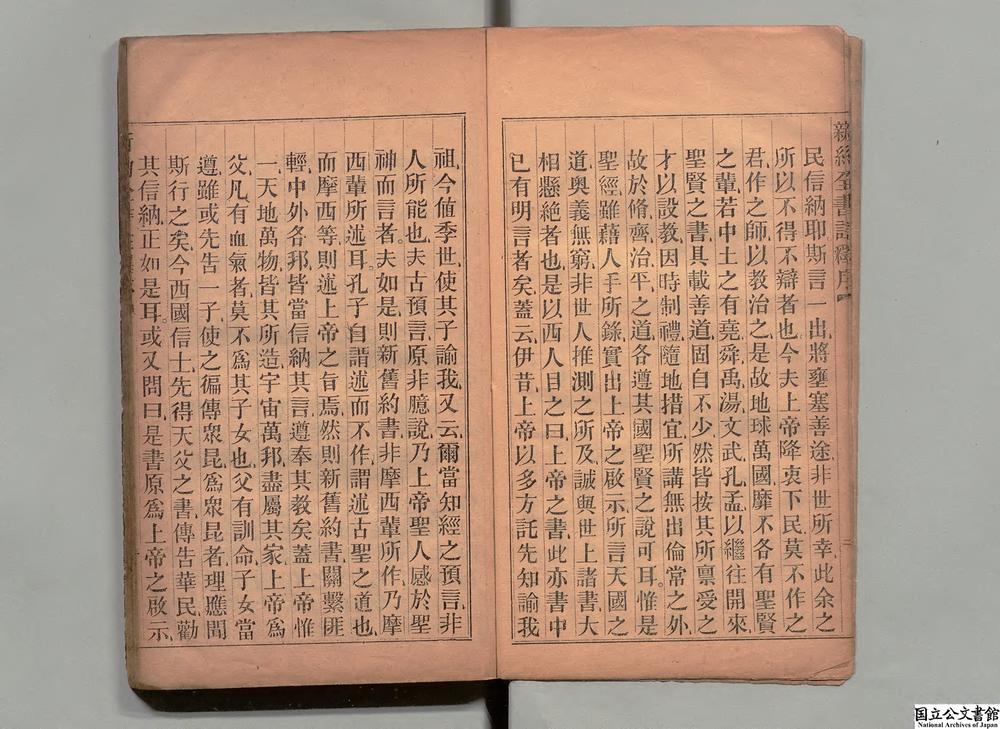 新約全書註釋序
民信納耶斯言一出將壅塞善途非世所幸此余之
所以不得不辯者也今夫上帝降衷下民莫不作之
君作之師以教治之是故地球萬國靡不各有聖賢
之輩若中土之有堯舜禹湯文武孔孟以繼往開來
聖賢之書具載善道固自不少然皆按其所稟受之
才以設教因時制禮隨地措宜所講無出倫常之外
故於脩齊治平之道各遵其國聖賢之說可耳惟是
聖經雖藉人手所錄實出上帝之啟示所言天國之
道奧義無窮非世人推測之所及誠與世上諸書大
相懸絕者也是以西人目之曰上帝之書此亦書中
已有明言者矣蓋云伊昔上帝以多方託先知諭我
祖今值季世使其子諭我又云爾當知經之預言非
人所能也夫古預言原非臆說乃上帝聖人感於聖
神而言者夫如是則新舊約書非摩西輩所作乃摩
西輩所述耳孔子自謂述而不作謂述古聖之道也
而摩西等則述上帝之旨焉然則新舊約書關繫匪
輕中外各邦皆當信納其言遵奉其教矣蓋上帝惟
一天地萬物皆其所造宇宙萬邦盡屬其家上帝爲
父凡有血氣者莫不爲其子女也父有訓命子女當
遵雖或先告一子使之徧傳衆昆爲衆昆者理應聞
斯行之矣今西國信士先得天父之書傳告華民勸
其信納正如是耳或又問曰是書原爲上帝之啟示
国立公文書館
National Archives of Japan